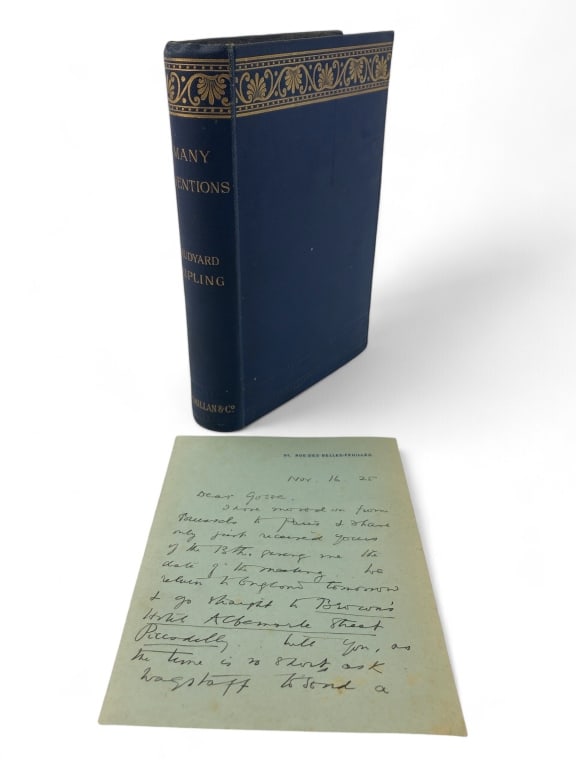 MANY
ENTIONS
UDYARD
IPLING
MILLAN & Co
RUE-DES-BELLES-FEUILLES
Nov. 16. 25
Dear Gosse.
I have moved on from
Brussels to Paris & have
only just received yours
of the 13th. giving me the
date of the meeting. We
return to England tomorrow
& go straight to Brown's
Hotel Albemarle Street
Piccadilly. Will you, as
the time is so short, ask
Wagstaff to send a